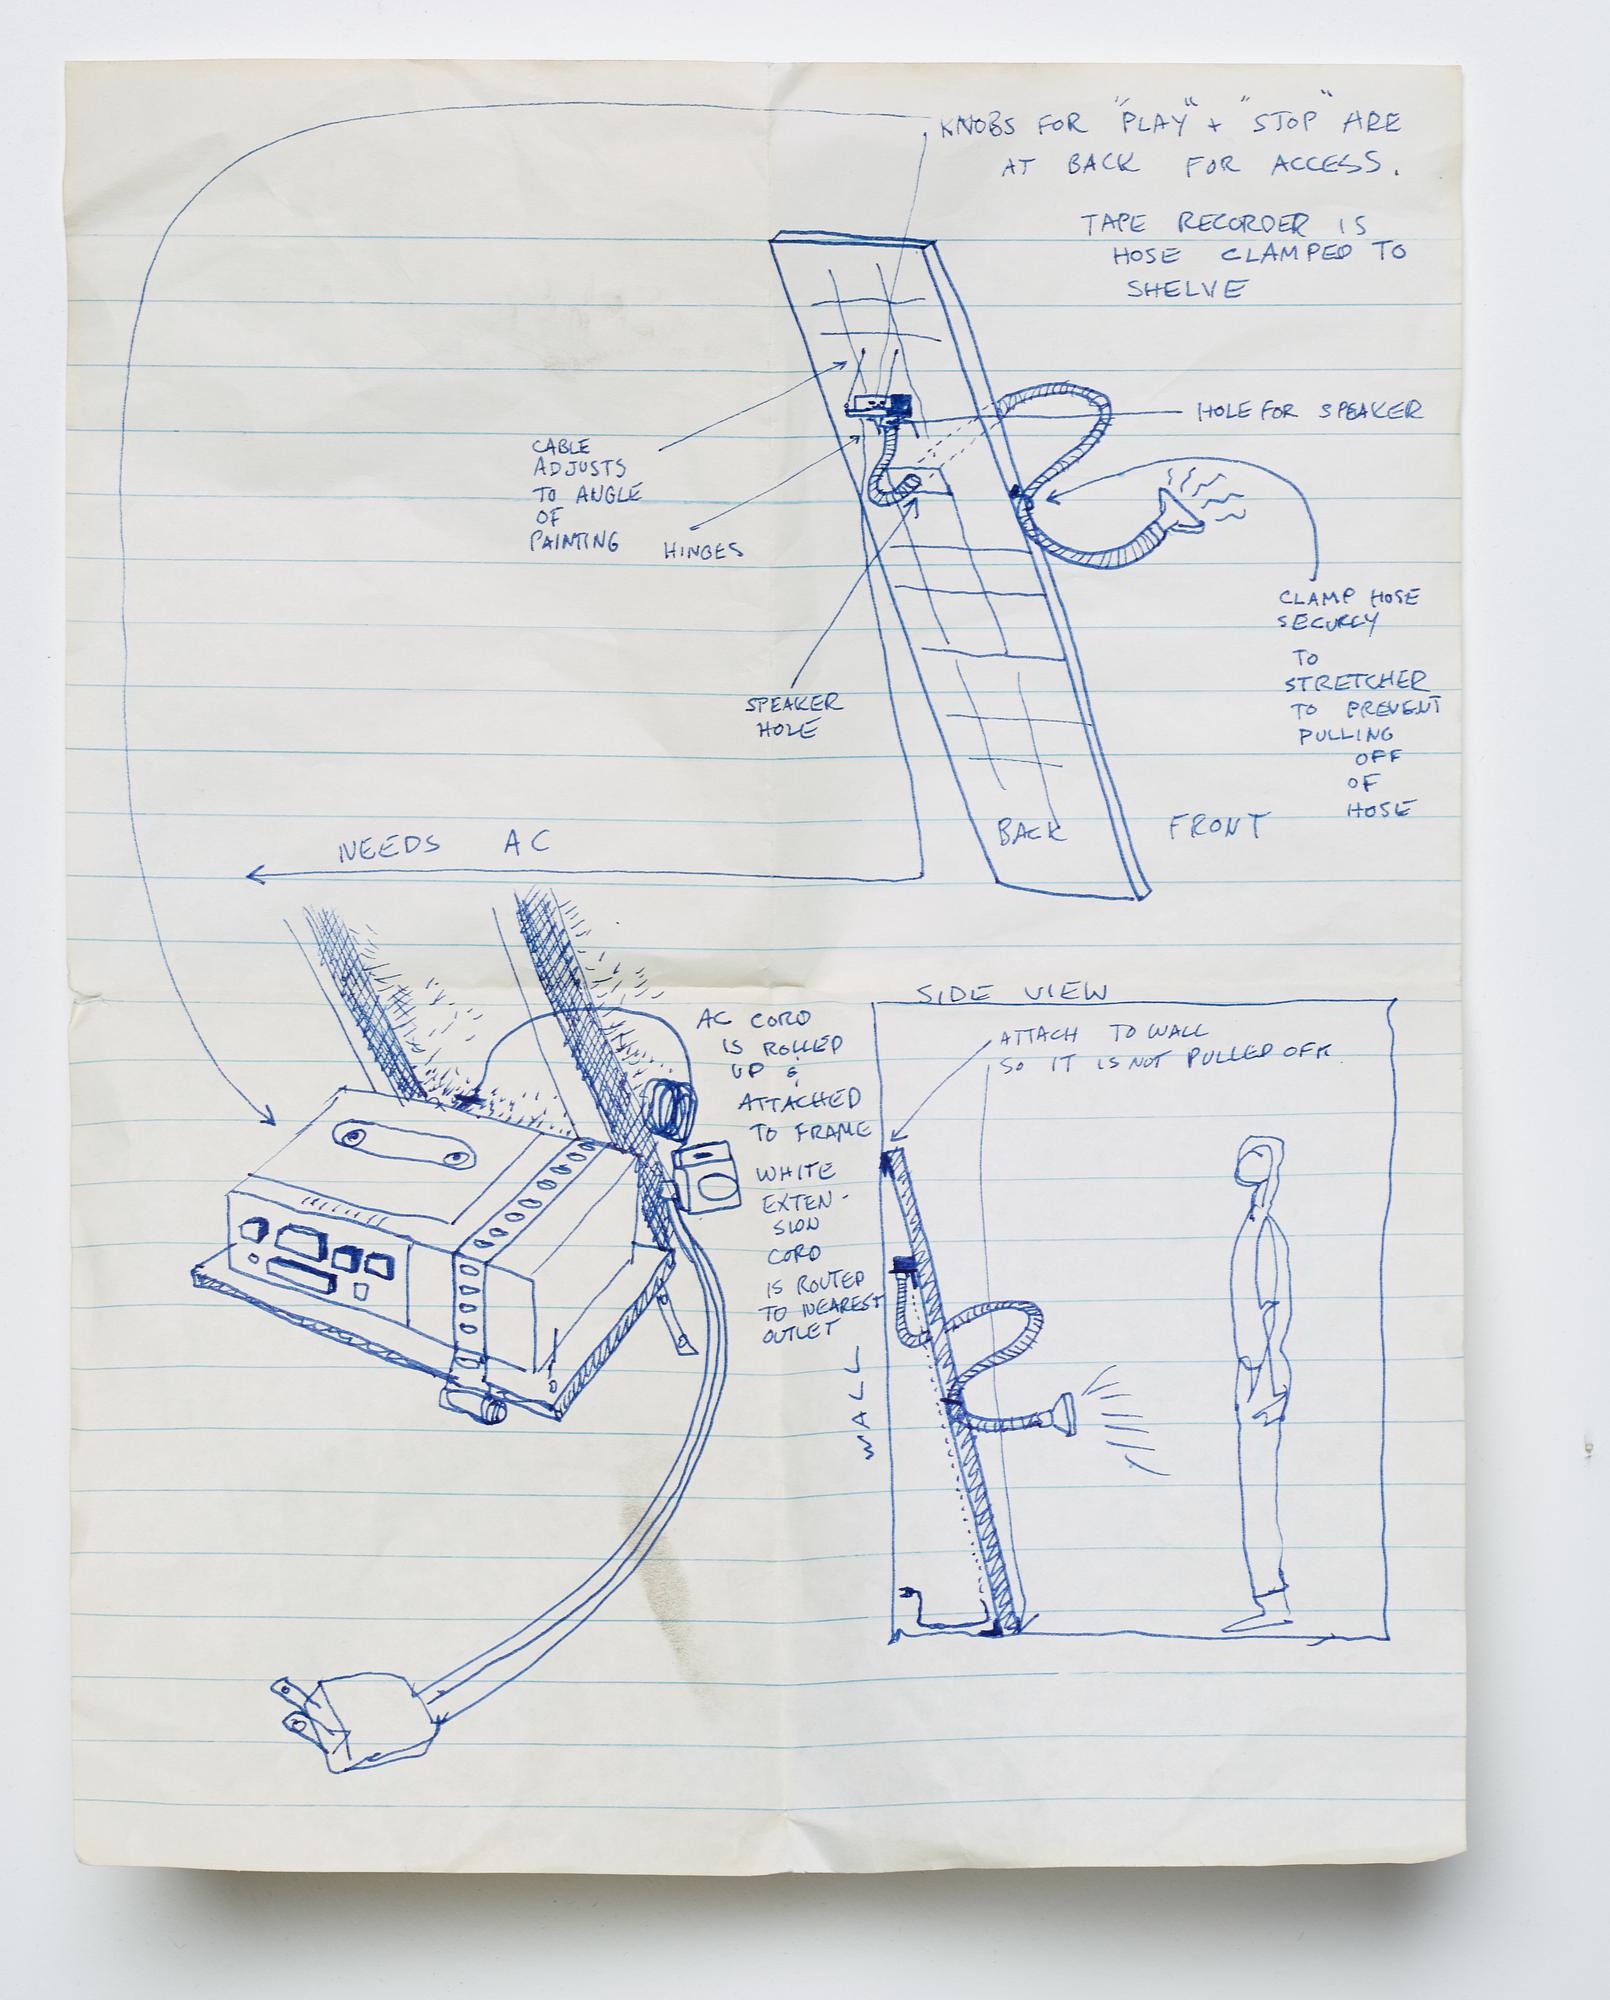 KNOBS FOR "PLAY" + "STOP" ARE
AT BACK FOR ACCESS.
TAPE RECORDER IS
HOSE CLAMPED TO
SHELVE
HOLE FOR SPEAKER
CABLE
ADJUSTS
TO ANGLE
OF
PAINTING
HINGES
CLAMP HOSE
SECURLY
TO
STRETCHER
TO PREVENT
PULLING
OFF
OF
HOSE
SPEAKER
HOLE
BACK
FRONT
NEEDS AC
AC CORD
IS ROLLED
UP &
ATTACHED
TO FRAME
WHITE
EXTEN-
SION
CORD
IS ROUTED
TO NEAREST
OUTLET
SIDE VIEW
ATTACH TO WALL
SO IT IS NOT PULLED OFF.
WALL